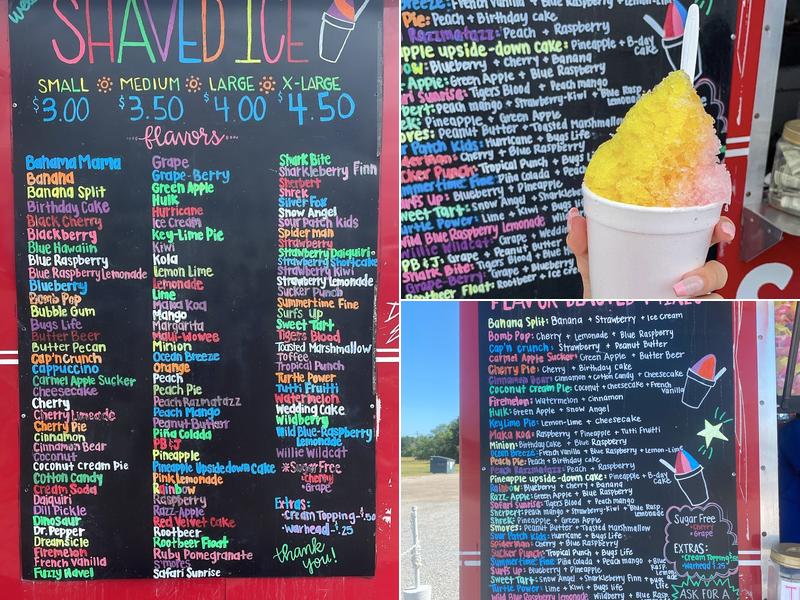 SHAVED ICE
SMALL MEDIUM LARGE X-LARGE
$3.00 $3.50 $4.00 $4.50
flavors
Bahama Mama
Banana
Banana Split
Birthday Cake
Black Cherry
Blackberry
Blue Hawaiin
Blue Raspberry
Blue Raspberry Lemonade
Blueberry
Bomb Pop
Bubble Gum
Bugs Life
Butter Beer
Butter Pecan
Cap'n Crunch
Cappuccino
Carmel Apple Sucker
Cheesecake
Cherry
Cherry Limeade
Cherry Pie
Cinnamon
Cinnamon Bear
Coconut
Coconut Cream Pie
Cotton Candy
Cream Soda
Daiquiri
Dill Pickle
Dinosaur
Dr. Pepper
Dreamsicle
Firemelon
French Vanilla
Fuzzy Navel
Grape
Grape-Berry
Green Apple
Hulk
Hurricane
Ice Cream
Key-Lime Pie
Kiwi
Kola
Lemon Lime
Lemonade
Lime
Maka Koa
Mango
Margarita
Maui-Wowee
Minion
Ocean Breeze
Orange
Peach
Peach Pie
Peach Razmatazz
Peach Mango
Peanut Butter
Piña Colada
PB & J
Pineapple
Pineapple Upside down Cake
Pink Lemonade
Rainbow
Raspberry
Razz-Apple
Red Velvet Cake
Rootbeer
Rootbeer Float
Ruby Pomegranate
S'mores
Safari Sunrise
Shark Bite
Sharkleberry Finn
Sherbert
Shrek
Silver Fox
Snow Angel
Sour Patch Kids
Spiderman
Strawberry
Strawberry Daiquiri
Strawberry Shortcake
Strawberry Kiwi
Strawberry Lemonade
Sucker Punch
Summertime Fine
Surfs Up
Sweet Tart
Tigers Blood
Toasted Marshmallow
Toffee
Tropical Punch
Turtle Power
Tutti Fruitti
Watermelon
Wedding Cake
Wildberry
Wild Blue-Raspberry
Lemonade
Willie Wildcat
Sugar Free
Cherry
Grape
Extras:
Cream Topping-$.50
Warhead-$.25
thank
you!
Pie: Peach + Birthday cake
Razzmatazz: Peach + Raspberry
apple upside-down cake: Pineapple + B-day
cake
Blueberry + Cherry + Banana
Apple: Green Apple + Blue Raspberry
ari Sunrise: Tigers Blood + Peach mango
Peach mango + Strawberry-Kiwi + Blue Rasp
Pineapple + Green Apple
Peanut Butter + Toasted Marshmallow
Patch Kids: Hurricane + Bugs Life
Cherry + Blue Raspberry
Punch: Tropical Punch + Bugs
mmertime Fine: Piña Colada + Peach
urfs Up: Blueberry + Pineapple
Sweet Tart:
Turtle Power: Lime + Kiwi +
Wild Blue Raspberry Lemonade
PB & J: Grape + Peanut Butter
Shark Bite:
Rootbeer Float:
FLAVOR BLASTED MIXES
Banana Split: Banana + Strawberry + Ice Cream
Bomb Pop: Cherry + Lemonade + Blue Raspberry
Cap'n crunch: Strawberry + Peanut Butter
Carmel Apple Sucker: Green Apple + Butter Beer
Cherry Pie: Cherry + Birthday cake
Cinnamon Bear: Cinnamon + Cotton Candy + Cheesecake
Coconut Cream Pie: Coconut + Cheesecake + French
Vanilla
Firemelon: Watermelon + Cinnamon
Hulk: Green Apple + Snow Angel
Key Lime Pie: Lemon-Lime + Cheesecake
Maka Koa: Raspberry + Pineapple + Tutti Fruitti
Minion: Birthday Cake + Blue Raspberry
Ocean Breeze: French Vanilla + Blue Raspberry + Lemon-Lime
Peach Pie: Peach + Birthday cake
Peach Razzmatazz: Peach + Raspberry
Pineapple upside-down cake: Pineapple + B-day
cake
Rainbow: Blueberry + Cherry + Banana
Razz-Apple: Green Apple + Blue Raspberry
Safari Sunrise: Tigers Blood + Peach mango
Sherbert: Peach mango + Strawberry-Kiwi + Blue Rasp.
Lemonade
Shrek: Pineapple + Green Apple
Smores: Peanut Butter + Toasted Marshmallow
Sour Patch Kids: Hurricane + Bugs Life
Spiderman: Cherry + Blue Raspberry
Sucker Punch: Tropical Punch + Bugs Life
Summertime Fine: Piña Colada + Peach mango +
Surfs Up: Blueberry + Pineapple
Sweet Tart: Snow Angel + Sharkleberry Finn + Bugs
Turtle Power: Lime + Kiwi + Blue Raspberry
Wild Blue Raspberry Lemonade:
Sugar Free
Cherry
Grape
EXTRAS:
Cream Topping
Warhead $.25
ASK FOR A